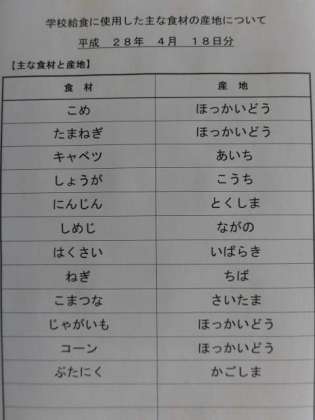 学校給食に使用した主な食材の産地について
平成　２８年　４月　１８日分
【主な食材と産地】
食　材　産　地
こめ　ほっかいどう
たまねぎ　ほっかいどう
キャベツ　あいち
しょうが　こうち
にんじん　とくしま
しめじ　ながの
はくさい　いばらき
ねぎ　ちば
こまつな　さいたま
じゃがいも　ほっかいどう
コーン　ほっかいどう
ぶたにく　かごしま